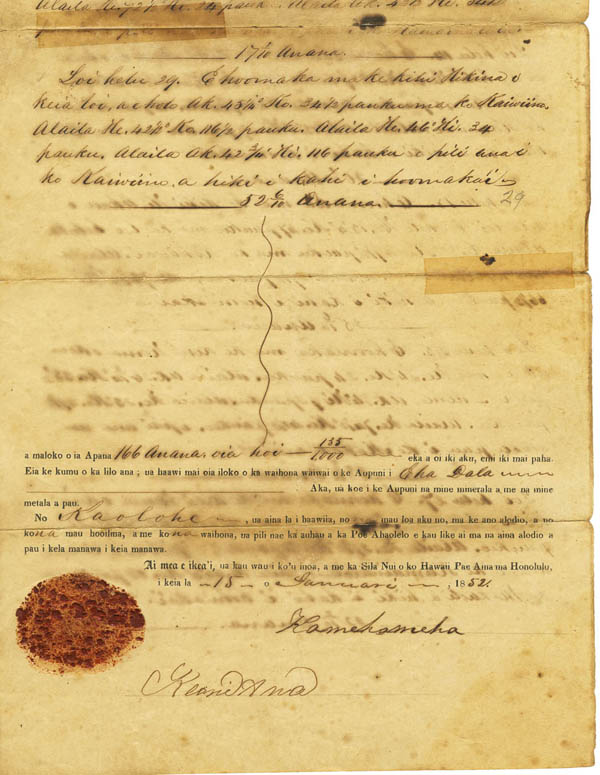 Alaila
17 7/10 Anana.
Loi helu 29. E hoomaka ma ke kihi Hikina i
keia loi, a e holo Ak. 45½° Ko. 34½ pauku ma ko Kaiwiino.
Alaila He. 42½° Ko. 116½ pauku. Alaila He. 46° Hi. 34
pauku. Alaila Ak. 42 ¾° Hi. 116 pauku e pili ana i
ko Kaiwiino, a hiki i kahi i hoomaka'i.
52 6/10 Anana. 29
a maloko o ia Apana 166 Anana. oia hoi 135/1000 eka a oi iki aku, emi iki mai paha.
Eia ke kumu o ka lilo ana; ua haawi mai oia iloko o ka waihona waiwai o ke Aupuni i Eha Dala
Aka, ua koe i ke Aupuni na mine minerala a me na mine
metala a pau.
No Kaolohe, ua aina la i haawiia, no na mau loa aku no, ma ke ano alodio, a no
kona mau hooilina, a me kona waihona, ua pili nae ka auhau a ka Poe Ahaolelo e kau like ai ma na aina alodio a
pau i kela manawa i keia manawa.
Ai mea e ikea'i, ua kau wau i ko'u inoa, a me ka Sila Nui o ko Hawaii Pae Aina ma Honolulu,
i keia la 15 o Ianuari, 1852.
Kamehameha
Keoni Ana